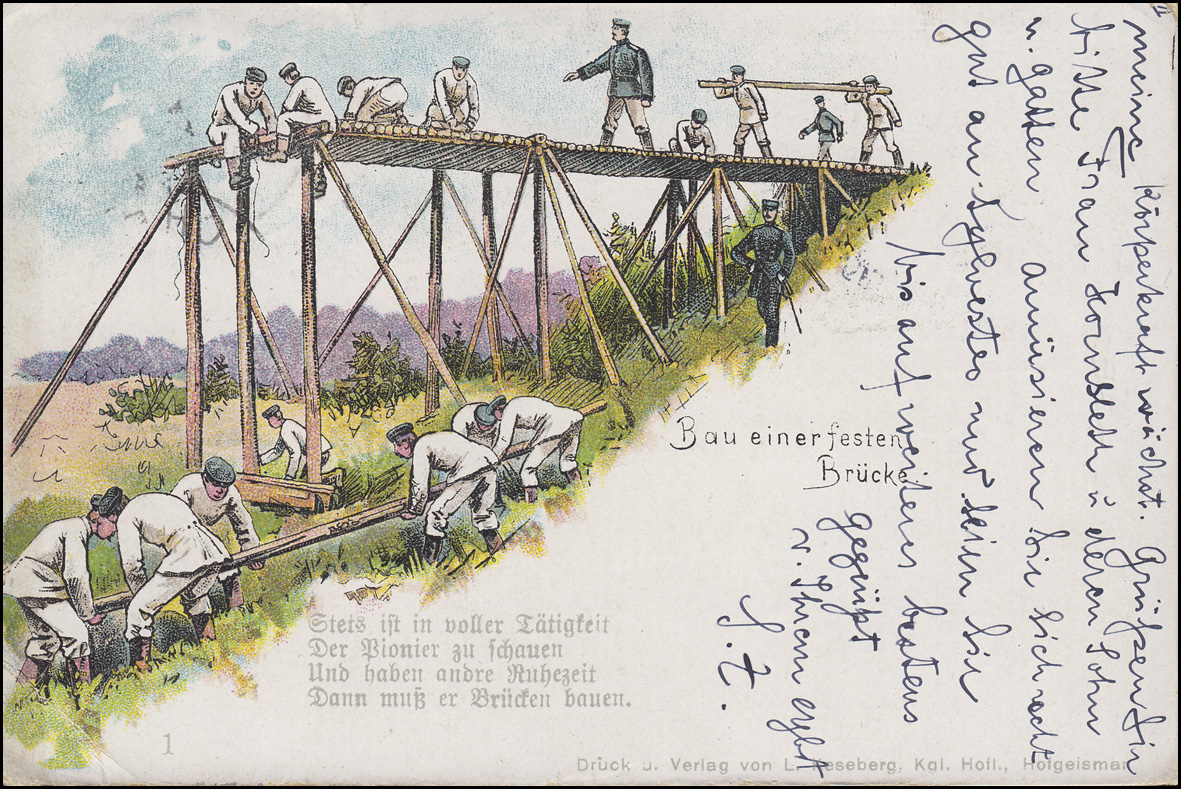 Bau einer festen
Brücke.
Stets ist in voller Tätigkeit
Der Pionier zu schauen
Und haben andre Ruhezeit
Dann muß er Brücken bauen.
1
Druck u. Verlag von L. Keseberg, Kgl. Hofl., Hofgeismar.
meine Körperkraft wächst. Grüßen Sie
bitte Frau u deren Sohn
u. Gatten amüsieren Sie sich recht
gut an Sylvester und seien Sie
bis auf weiteres bestens
gegrüßt
v. Ihrem ergbst